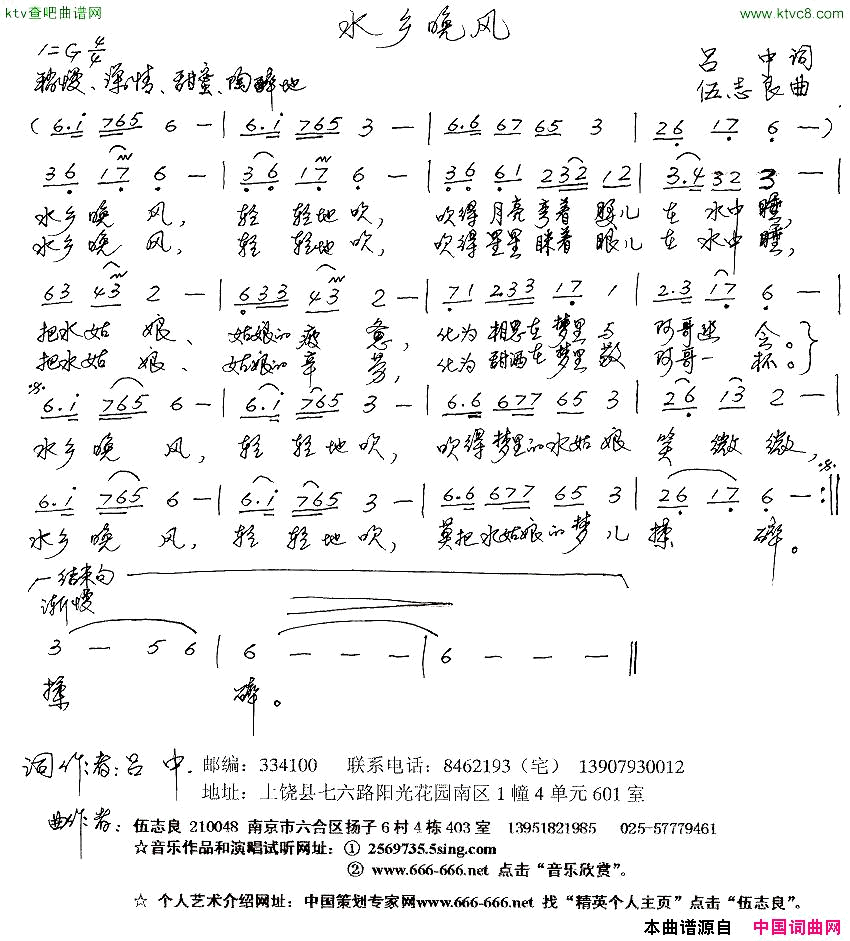 ktv查吧曲谱网
www.ktvc8.com
水乡晚风
1=G 4/4
吕中词
稍慢、深情、甜蜜、陶醉地
伍志良曲
(6.i 765 6 - | 6.i 765 3 - | 6.6 67 65 3 | 26 17 6 -)
36 17 6 - | 36 17 6 - | 36 61 232 12 | 3.4 32 3 - |
水乡晚风, 轻轻地吹, 吹得月亮弯着腰儿在水中睡,
水乡晚风, 轻轻地吹, 吹得星星眯着眼儿在水中睡,
63 43 2 - | 633 43 2 - | 71 233 17 1 | 2.3 17 6 - |
把水姑娘、姑娘的疲惫, 化为相思在梦里与阿哥幽会。
把水姑娘、姑娘的辛劳, 化为甜酒在梦里敬阿哥一杯。
6.i 765 6 - | 6.i 765 3 - | 6.6 677 65 3 | 26 13 2 - |
水乡晚风, 轻轻地吹, 吹得梦里的水姑娘笑微微,
6.i 765 6 - | 6.i 765 3 - | 6.6 677 65 3 | 26 17 6 - :||
水乡晚风, 轻轻地吹, 莫把水姑娘的梦儿揉碎。
结束句
渐慢
3 - 5 6 | 6 - - - | 6 - - - ||
揉碎。
词作者:吕中. 邮编:334100 联系电话:8462193(宅) 13907930012
地址:上饶县七六路阳光花园南区1幢4单元601室
曲作者:伍志良 210048 南京市六合区扬子6村4栋403室 13951821985 025-57779461
☆音乐作品和演唱试听网址:① 2569735.5sing.com
② www.666-666.net 点击“音乐欣赏”。
☆ 个人艺术介绍网址:中国策划专家网www.666-666.net 找“精英个人主页”点击“伍志良”。
本曲谱源自 中国词曲网